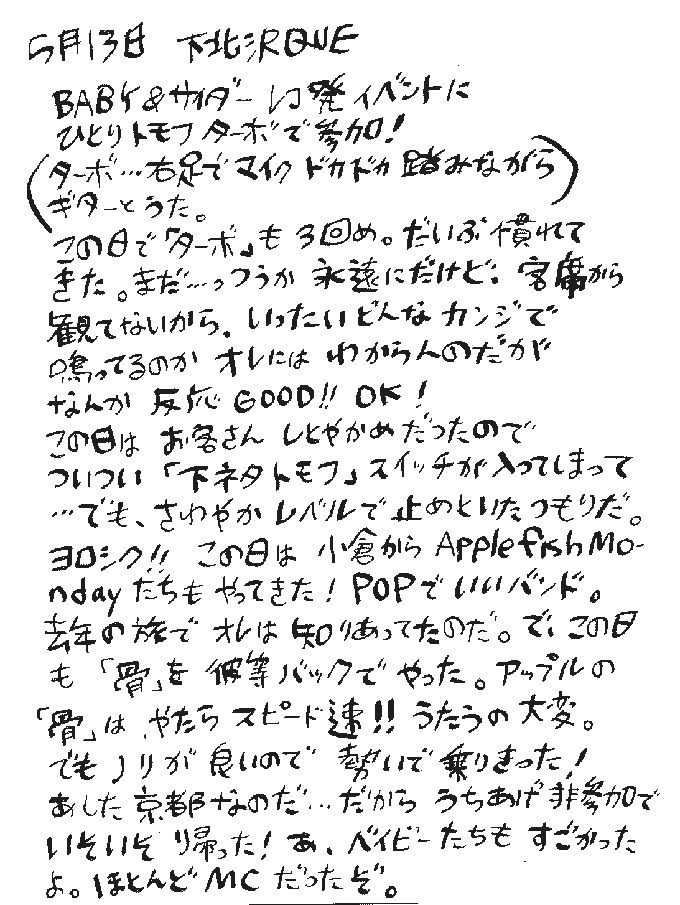 5月13日 下北沢QUE
BABY&サイダーレコ発イベントに
ひとりトモフターボで参加!
(ターボ…右足でマイクドカドカ踏みながら
ギターとうた。)
この日で「ターボ」も3回め。だいぶ慣れて
きた。まだ…っつうか永遠にだけど、客席から
観てないから、いったいどんなカンジで
鳴ってるのかオレにはわからんのだが
なんか反応GOOD!! OK!
この日はお客さんしとやかめだったので
ついつい「下ネタトモフ」スイッチが入ってしまって
…でも、さわやかレベルで止めといたつもりだ。
ヨロシク!! この日は小倉からApplefishMo-
ndayたちもやってきた! POPでいいバンド。
去年の旅でオレは知りあってたのだ。で、この日
も「骨」を彼等バックでやった。アップルの
「骨」は、やたらスピード速!! うたうの大変。
でもノリが良いので勢いで乗りきった!
あした京都なのだ…だからうちあげ非参加で
いそいそり帰った! あ、ベイビーたちもすごかった
よ。ほとんどMCだったぞ。